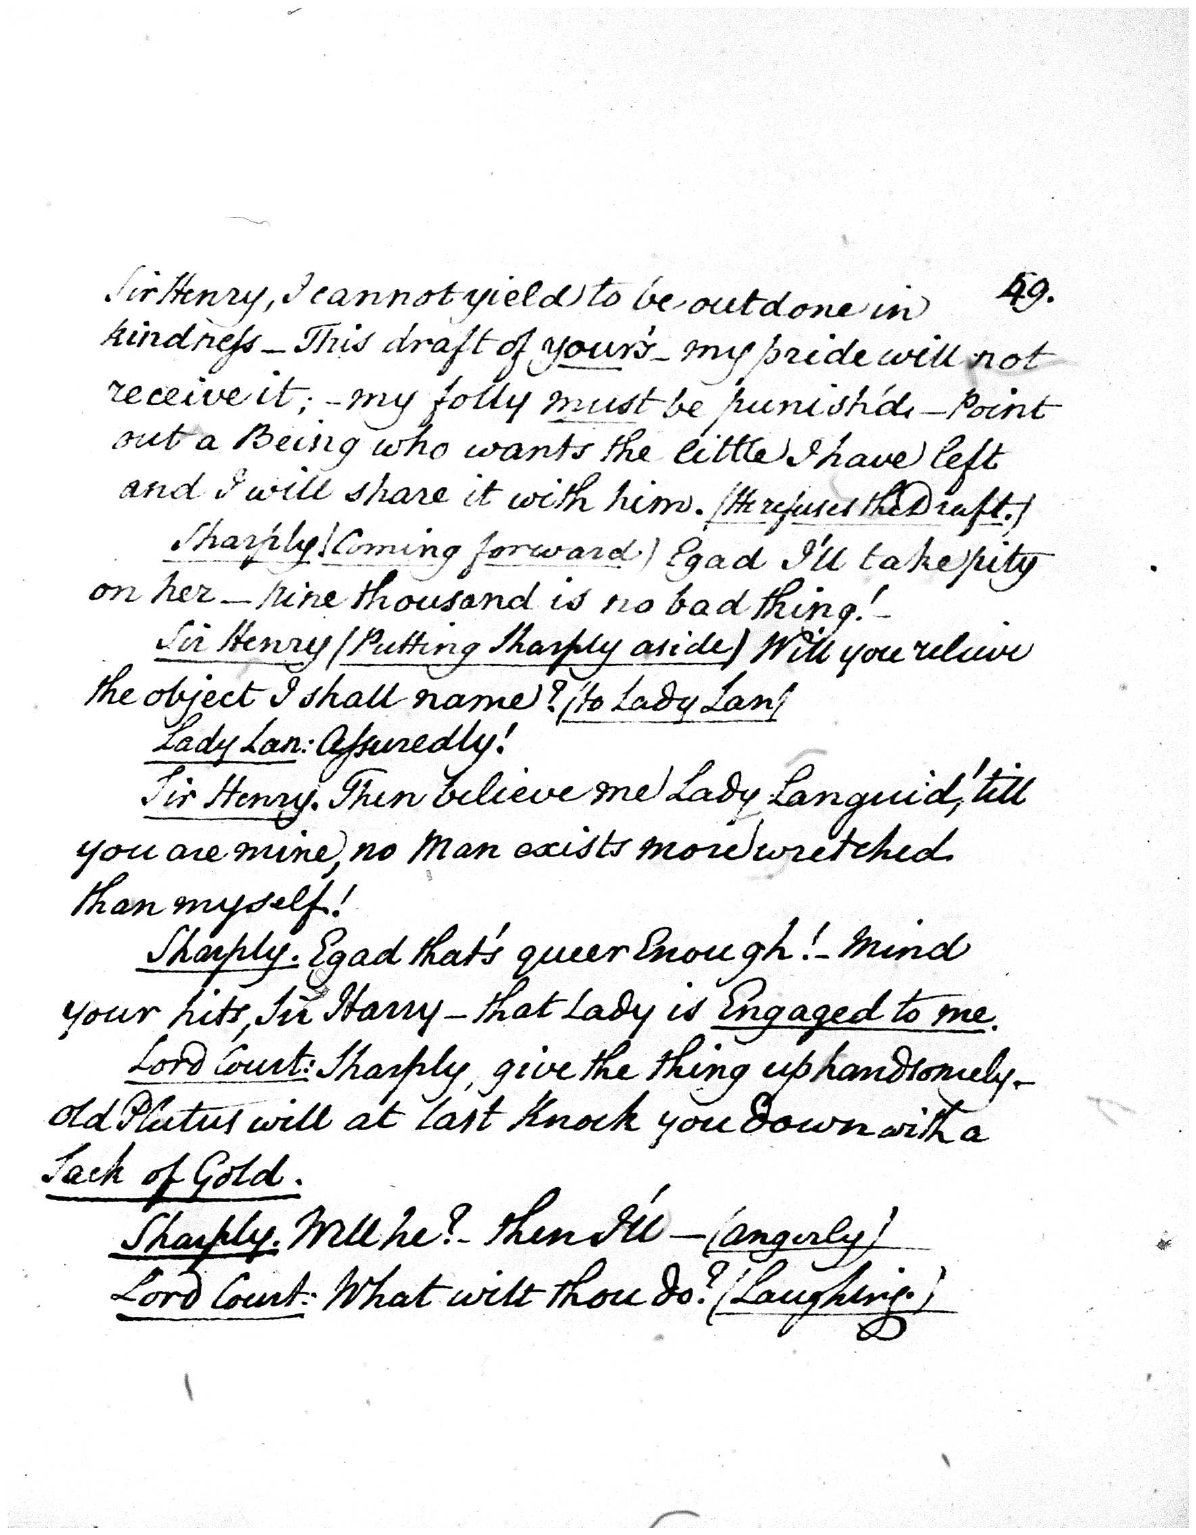 49.
Sir Henry, I cannot yield to be outdone in
kindness – This draft of your's – my pride will not
receive it; – my folly must be punish'd – Point
out a Being who wants the little I have left
and I will share it with him. (He refuses the Draft.)
Sharply (Coming forward) Egad I'll take pity
on her – nine thousand is no bad thing! –
Sir Henry (Putting Sharply aside) Will you relieve
the object I shall name? (to Lady Lan)
Lady Lan: Assuredly!
Sir Henry. Then believe me Lady Languid, 'till
you are mine, no Man exists more wretched
than myself!
Sharply. Egad that's queer Enough! – Mind
your hits, Sir Harry – that Lady is Engaged to me.
Lord Court: Sharply, give the thing up handsomely –
old Plutus will at last Knock you down with a
Sack of Gold.
Sharply. Will he? – then I'll – (angerly)
Lord Court: What wilt thou do? (Laughing.)